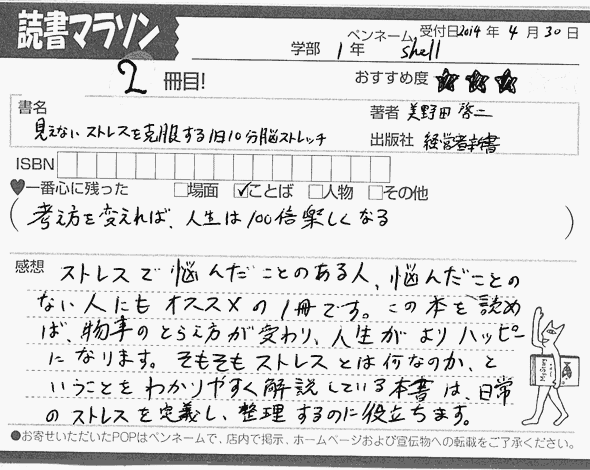 読書マラソン
受付日2014年 4月 30日
学部 1年 ペンネーム shell
2 冊目!
おすすめ度 ★★★
書名
著者 美野田 啓二
見えないストレスを克服する1日10分脳ストレッチ
出版社 経営者新書
ISBN
♥一番心に残った □場面 ☑ことば □人物 □その他
(考え方を変えれば、人生は100倍楽しくなる)
感想 ストレスで悩んだことのある人、悩んだことの
ない人にもオススメの1冊です。この本を読め
ば、物事のとらえ方が変わり、人生がよりハッピー
になります。そもそもストレスとは何なのか、と
いうことをわかりやすく解説している本書は、日常
のストレスを定義し、整理するのに役立ちます。
●お寄せいただいたPOPはペンネームで、店内で掲示、ホームページおよび宣伝物への転載をご了承ください。